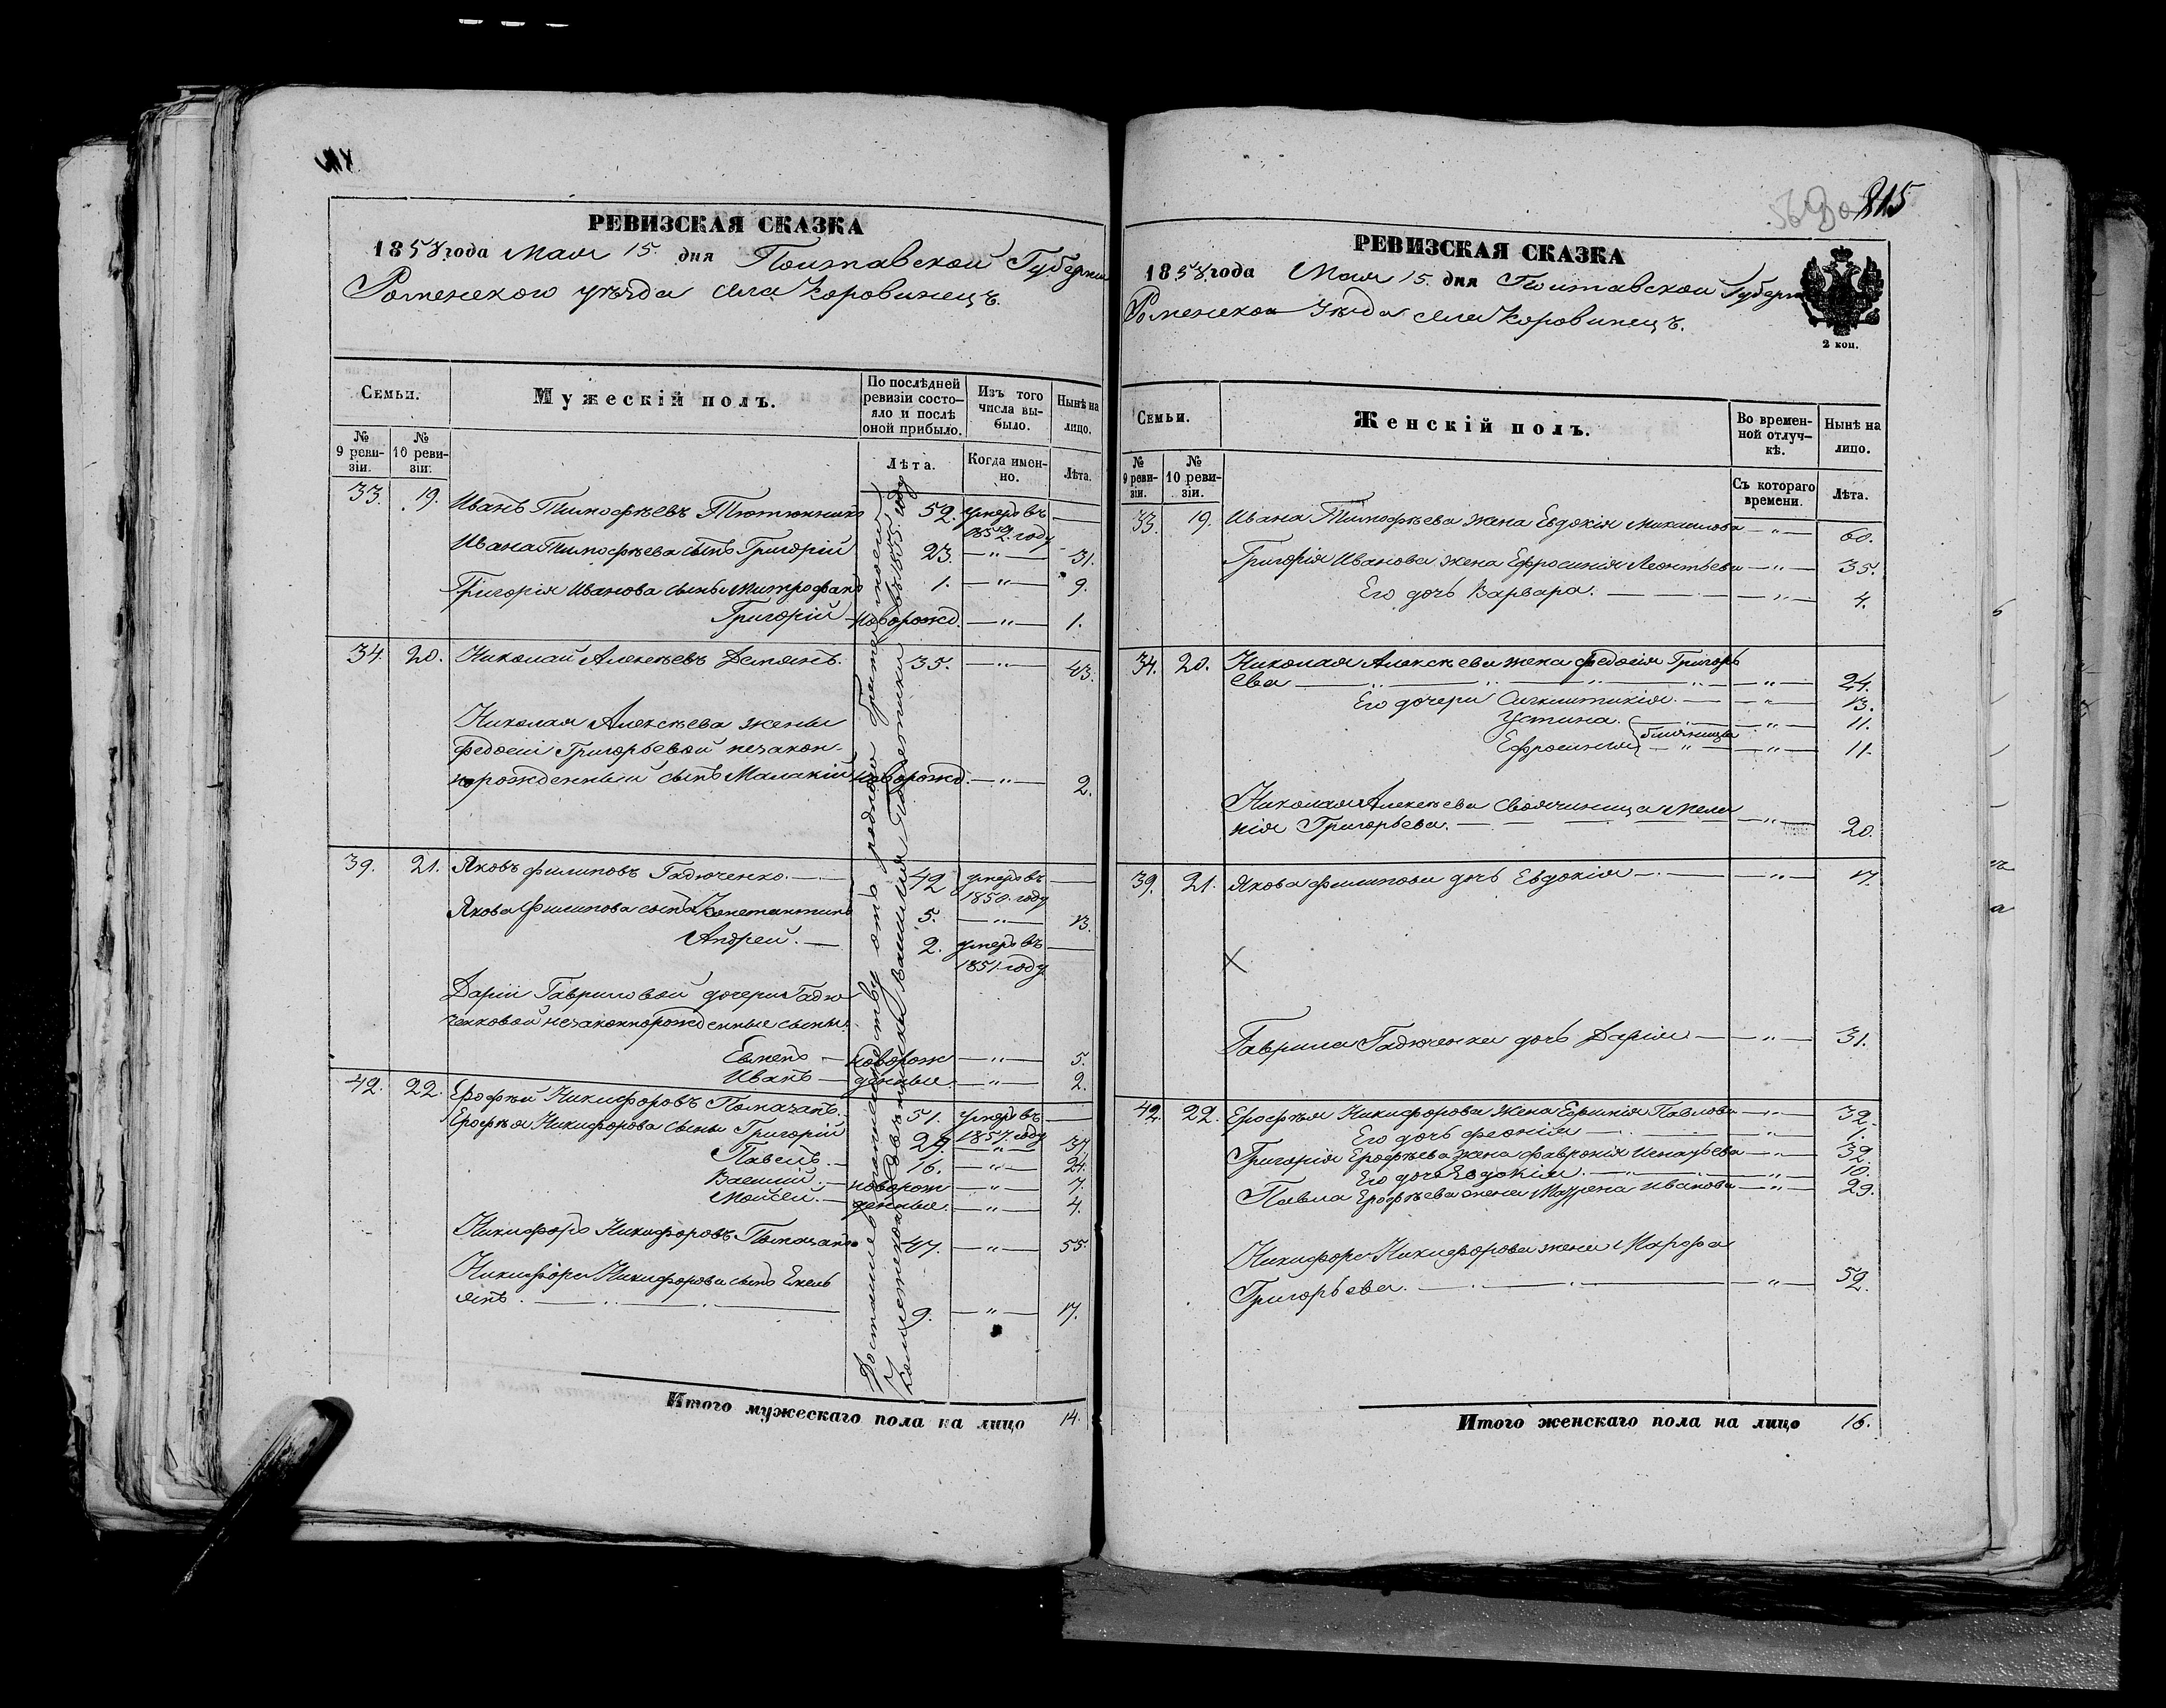 РЕВИЗСКАЯ СКАЗКА
1858 года Мая 15. дня Полтавской Губернии
Роменского уѣзда села Коровинецъ.
Семьи.
Мужескій полъ.
По послѣдней ревизіи состо-
яло и послѣ
оной прибыло.
Изъ того
числа вы-
было.
Нынѣ на
лицо.
№
9 реви-
зіи.
№
10 реви-
зіи.
Лѣта.
Когда имен-
но.
Лѣта.
33. 19. Иванъ Тимофѣевъ Тютюнникъ 52. умеръ въ
1852. году
Ивана Тимофѣева сынъ Григорій 23. — " — 31.
Григорія Иванова сыны Митрофанъ 1. — " — 9.
Григорій — новорожд. — " — 1.
34. 20. Николай Алексѣевъ Демянъ. 35. — " — 43.
Николая Алексѣева жены
Федосіи Григорьевой незакон-
норожденный сынъ Малахій новорожд. — " — 2.
39. 21. Яковъ Филиповъ Гадюченко. — 42 умеръ въ
1850. году
Якова Филипова сынъ Константинъ 5. — " — 13.
Андрей. — 2. умеръ въ
1851. году
Даріи Гавриловой дочери Гадю
ченковой незаконнорожденные сыны.
Евменъ — новорож — " — 5.
Иванъ — денные. — " — 2.
42. 22. Ерофѣй Никифоровъ Помазанъ. 51. умеръ въ
1857. году
Ерофѣя Никифорова сыны Григорій 29. — " — 37.
Павелъ. — 16. — " — 24.
Василій. — новорож — " — 7.
Моисей. — денные. — " — 4.
Никифоръ Никифоровъ Помазанъ 47. — " — 55.
Никифора Никифорова сынъ Емель
янъ. — 9. — " — 17.
Достались по наслѣдству отъ родной
въ 1855. году
Итого мужескаго пола на лицо 14.
815
РЕВИЗСКАЯ СКАЗКА
1858. года Мая 15. дня Полтавской Губерн
Роменского Уѣзда села Коровинецъ.
2 коп.
Семьи.
Женскій полъ.
Во времен-
ной отлуч-
кѣ.
Нынѣ на
лицо.
№
9 реви-
зіи.
№
10 реви-
зіи.
Съ котораго
времени.
Лѣта.
33. 19. Ивана Тимофѣева жена Евдокія Михайлова — " — 60.
Григорія Иванова жена Ефросинія Леонтьева — " — 35.
Его дочь Варвара. — " — 4.
34. 20. Николая Алексѣева жена Федосія Григорь
ева — " — 24.
Его дочери Сигклитикія. — " — 13.
Устина. — " — 11.
близницы
Ефросинія — " — 11.
Николая Алексѣева своячиница Мела
нія Григорьева. — " — 20.
39. 21. Якова Филипова дочь Евдокія — " — 17.
Х
Гаврила Гадюченка дочь Дарія — " — 31.
42. 22. Ерофѣя Никифорова жена Ефимія Павлова — " — 32.
Его дочь Феонія — " — 1.
Григорія Ерофѣева жена Февронія Игнатьева — " — 32.
Его дочь Евдокія. — " — 10.
Павла Ерофѣева жена Марина Иванова — " — 29.
Никифора Никифорова жена Марфа
Григорьева. — " — 52.
Итого женскаго пола на лицо 16.